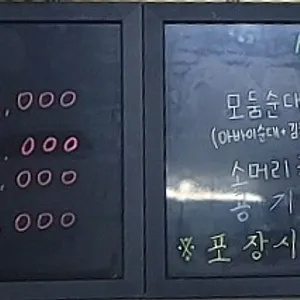 ,000
,000
,000
,000
모둠순대
(아바이순대+김
소머리
용기
※포장시